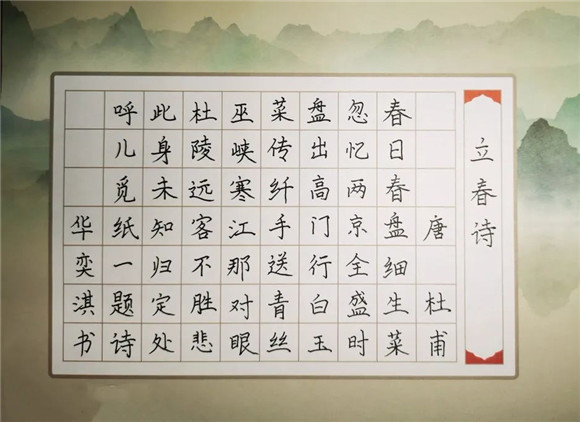 立春诗
唐 杜甫
春日春盘细生菜
忽忆两京全盛时
盘出高门行白玉
菜传纤手送青丝
巫峡寒江那对眼
杜陵远客不胜悲
此身未知归定处
呼儿觅纸一题诗
华奕淇书